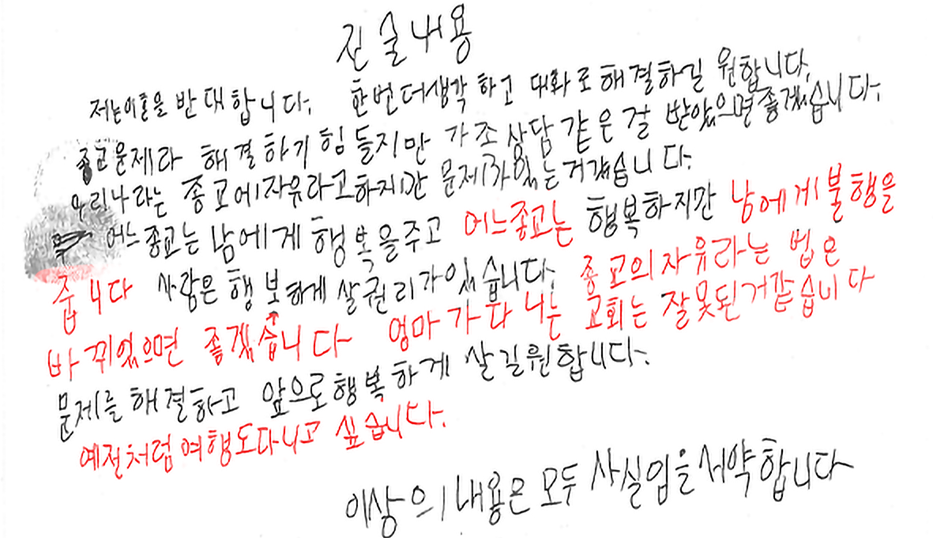 진술내용
저는이혼을 반대합니다. 한번더생각 하고 대화로해결하길 원합니다.
종교문제라 해결하기힘들지만 가조상담같은걸 받았으면좋겠습니다.
우리나라는 종교에자유라고하지만 문제가있는거같습니다.
어느종교는 남에게 행복을주고 어느종교는 행복하지만 남에게불행을
줍니다 사람은행보하게살권리가있습니다. 종교의자유라는 법은
바뀌었으면 좋겠습니다 엄마가다니는 교회는 잘못된거같습니다
문제를해결하고 앞으로행복하게 살길원합니다.
예전처럼여행도다니고 싶습니다.
이상의내용은 모두 사실임을서약합니다